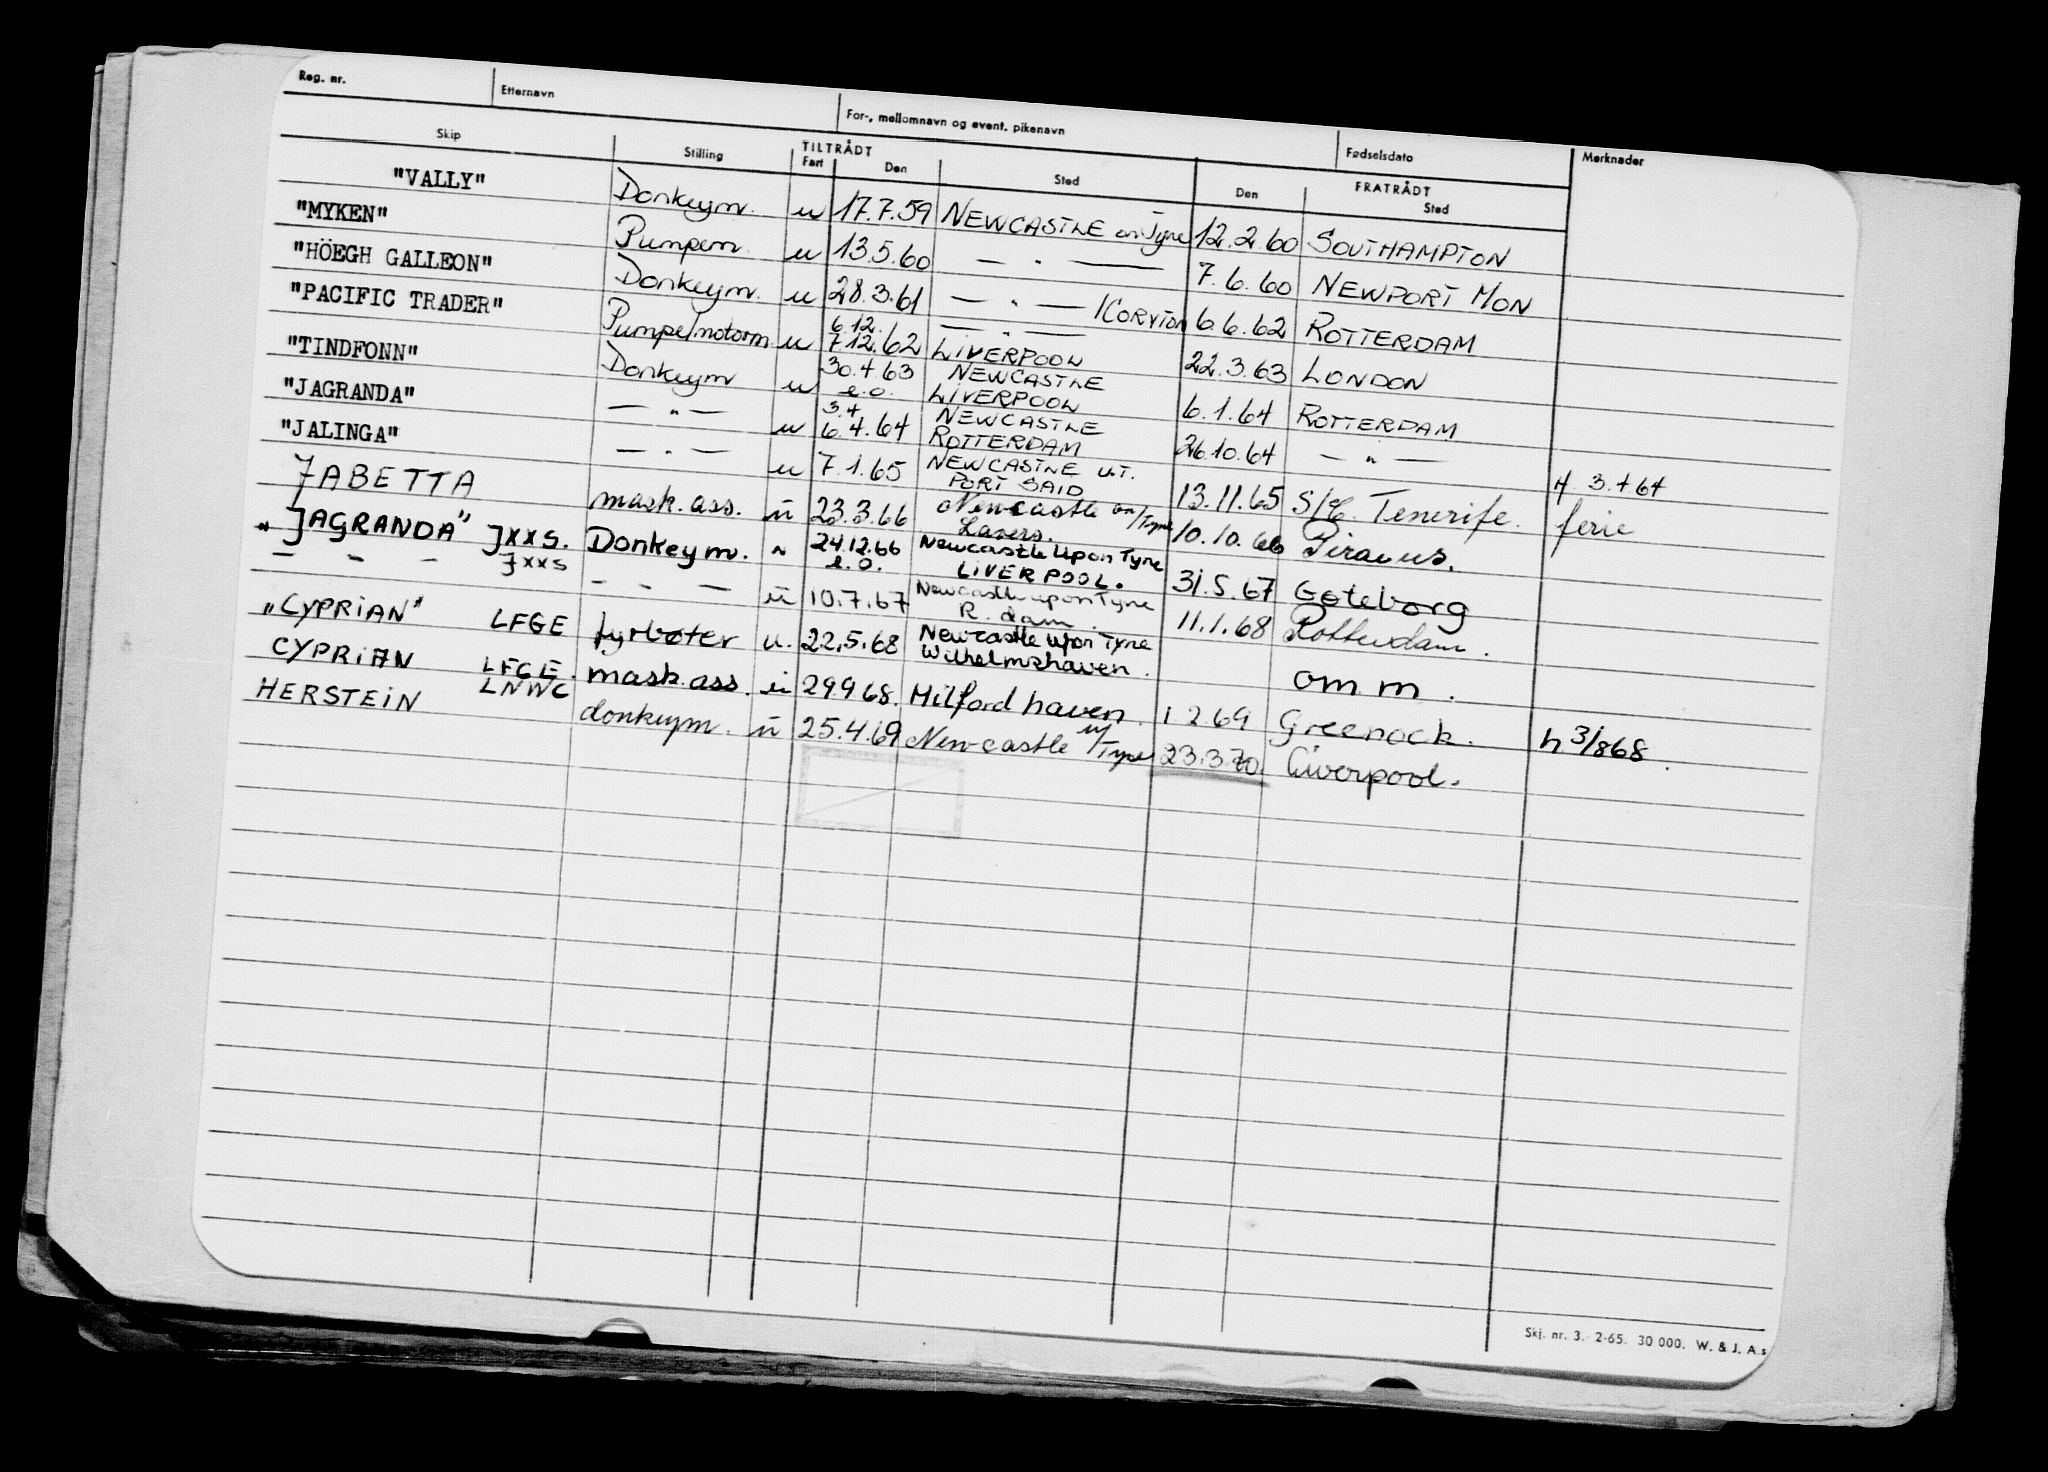 Reg. nr. Etternavn For-, mellomnavn og event. pikenavn Fødselsdato Merknader
Skip Stilling TILTRÅDT Fart Den Sted FRATRÅDT Den Sted
"VALLY" Donkeym. u 17.7.59 NEWCASTLE on Tyne 12.2.60 SOUTHAMPTON
"MYKEN" Pumpem. u 13.5.60 — " — 7.6.60 NEWPORT MON
"HÖEGH GALLEON" Donkeym. u 28.3.61 — " — /CORYTON 6.6.62 ROTTERDAM
"PACIFIC TRADER" Pumpe/motorm. u 6.12. — " —
7.12.62 LIVERPOOL 22.3.63 LONDON
"TINDFONN" Donkeym u 30.4.63 NEWCASTLE
e.o. LIVERPOOL 6.1.64 ROTTERDAM
"JAGRANDA" — " — u 3.4 NEWCASTLE
6.4.64 ROTTERDAM 26.10.64 — " — 3.4.64
"JALINGA" — " — u 7.1.65 NEWCASTLE U.T.
PORT SAID 13.11.65 S/C. Tenerife. ferie
JABETTA mask.ass. u 23.3.66 Newcastle on/Tyne
Lavera. 10.10.66 Piraeus.
"JAGRANDA" JXXS. Donkeym. " 24.12.66 Newcastle Upon Tyne
e.o. LIVERPOOL. 31.5.67 Gøteborg
— — — JXXS — — — u 10.7.67 Newcastle upon Tyne
R. dam. 11.1.68 Rotterdam.
"CYPRIAN" LFGE fyrbøter u. 22.5.68 Newcastle upon Tyne
Wilhelmshaven. om m.
CYPRIAN LFGE. mask.ass. u 29.9.68. Milford haven. 1.2.69 Greenock. h 3/868.
HERSTEIN LNWC donkeym. u 25.4.69 Newcastle u/Tyne 23.3.70. Liverpool.
Skj. nr. 3. 2-65. 30 000. W. & J. A.s